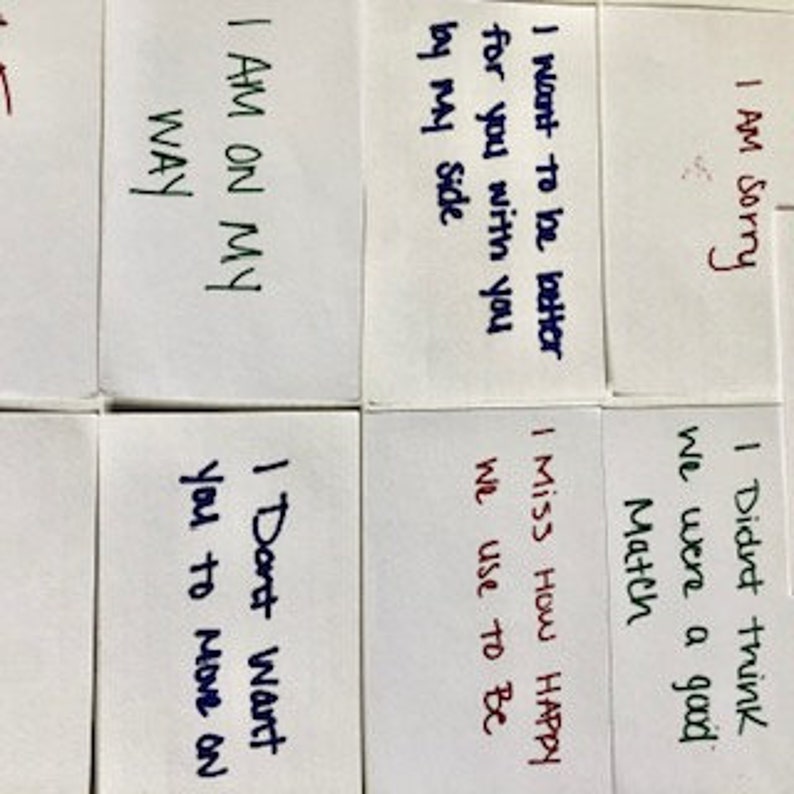 I AM Sorry
I Didnt think
we were a good
Match
I want to be better
for you with you
by My Side
I Miss How HAPPY
we use to Be
I AM ON MY
WAY
I Dont Want
you to Move ON